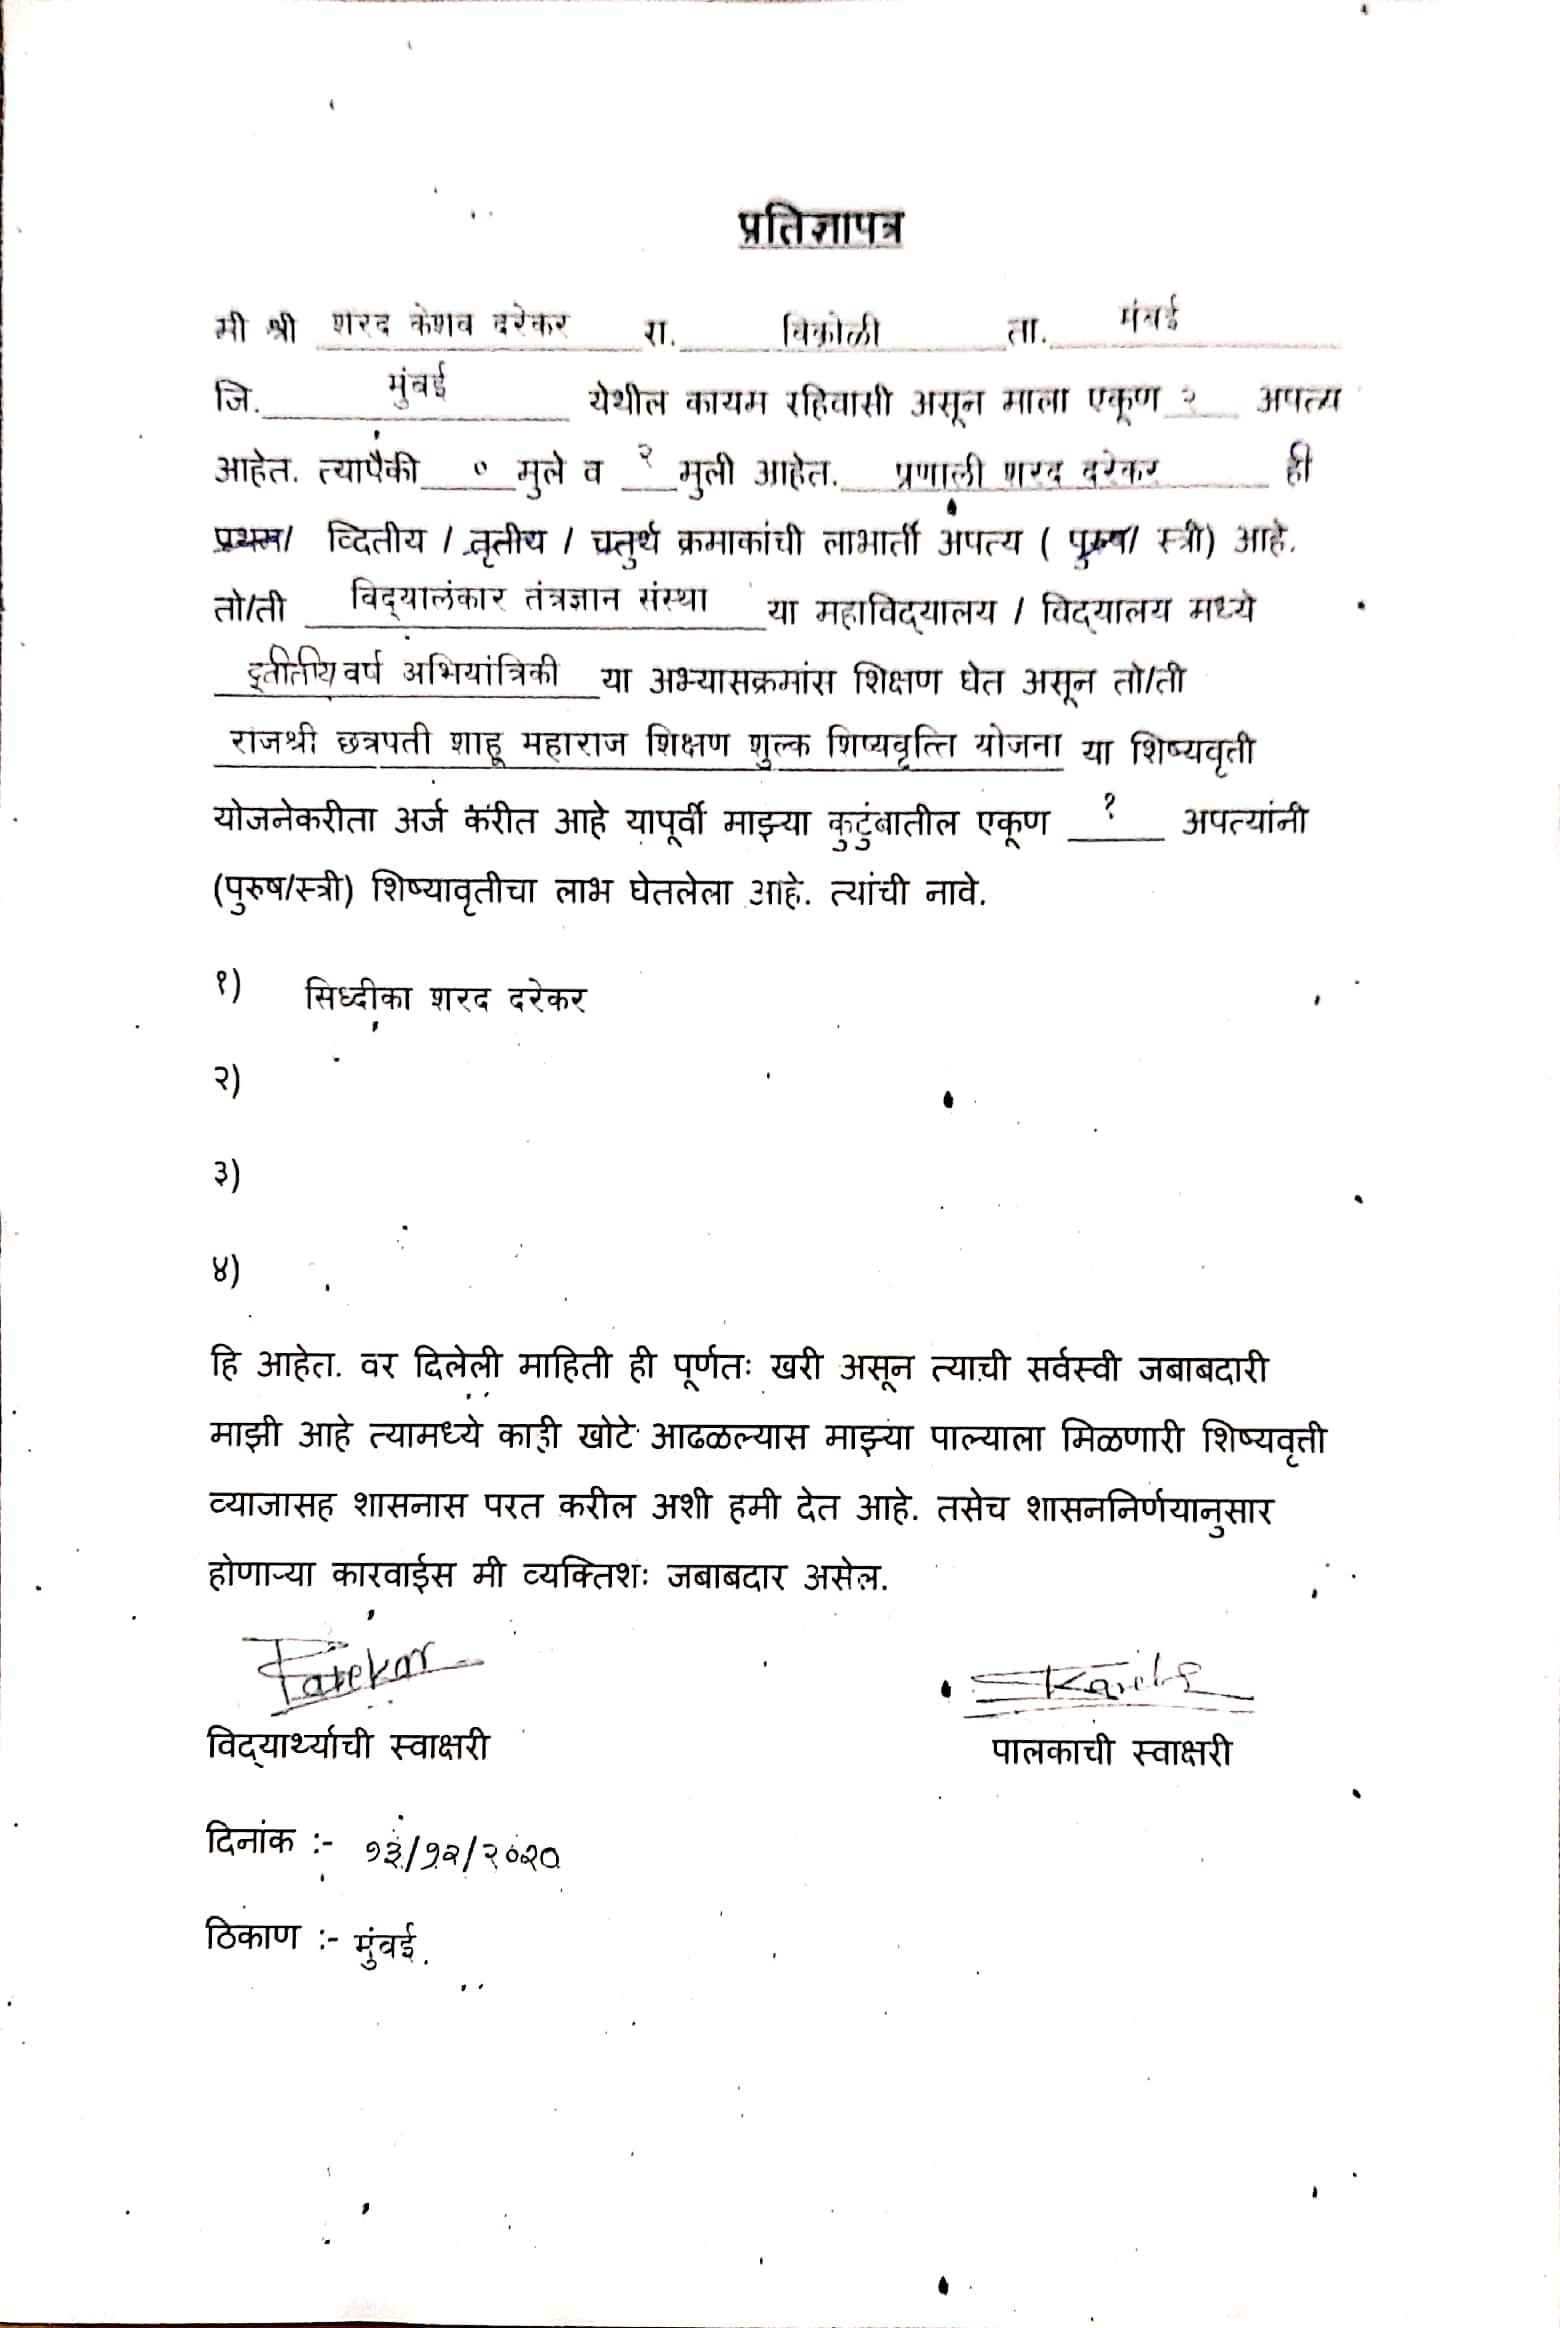 प्रतिज्ञापत्र
मी श्री शरद केशव दरेकर रा. विक्रोळी ता. मुंबई
जि. मुंबई येथील कायम रहिवासी असून माला एकूण २ अपत्य
आहेत. त्यापैकी ० मुले व २ मुली आहेत. प्रणाली शरद दरेकर ही
प्रथम/ व्दितीय / तृतीय / चतुर्थ क्रमाकांची लाभार्ती अपत्य ( पुरुष/ स्त्री) आहे.
तो/ती विद्यालंकार तंत्रज्ञान संस्था या महाविद्यालय / विद्यालय मध्ये
वर्ष अभियांत्रिकी या अभ्यासक्रमांस शिक्षण घेत असून तो/ती
राजश्री छत्रपती शाहू महाराज शिक्षण शुल्क शिष्यवृत्ति योजना या शिष्यवृती
योजनेकरीता अर्ज करीत आहे यापूर्वी माझ्या कुटुंबातील एकूण १ अपत्यांनी
(पुरुष/स्त्री) शिष्यावृतीचा लाभ घेतलेला आहे. त्यांची नावे.
१) सिध्दीका शरद दरेकर
२)
३)
४)
हि आहेत. वर दिलेली माहिती ही पूर्णतः खरी असून त्याची सर्वस्वी जबाबदारी
माझी आहे त्यामध्ये काही खोटे आढळल्यास माझ्या पाल्याला मिळणारी शिष्यवृती
व्याजासह शासनास परत करील अशी हमी देत आहे. तसेच शासननिर्णयानुसार
होणाऱ्या कारवाईस मी व्यक्तिशः जबाबदार असेल.
विद्यार्थ्याची स्वाक्षरी पालकाची स्वाक्षरी
दिनांक :- १३/१२/२०२०
ठिकाण :- मुंबई.